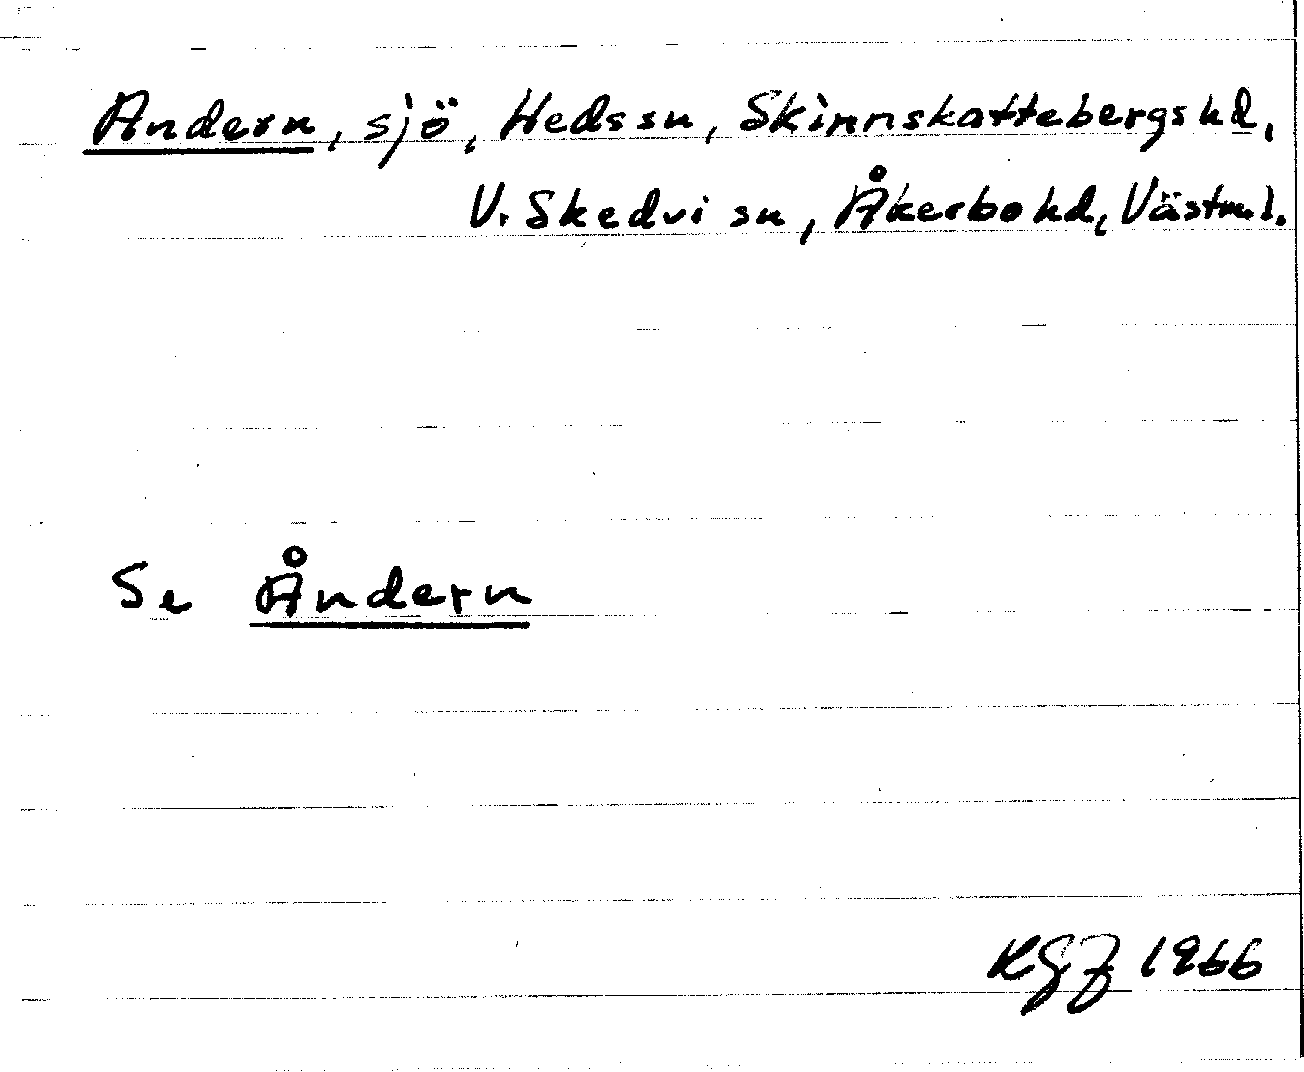 Andern, sjö, Heds sn, Skinnskattebergs hd,
V. Skedvi sn, Åkerbo hd, Västml.
Se Åndern
KGJ 1966